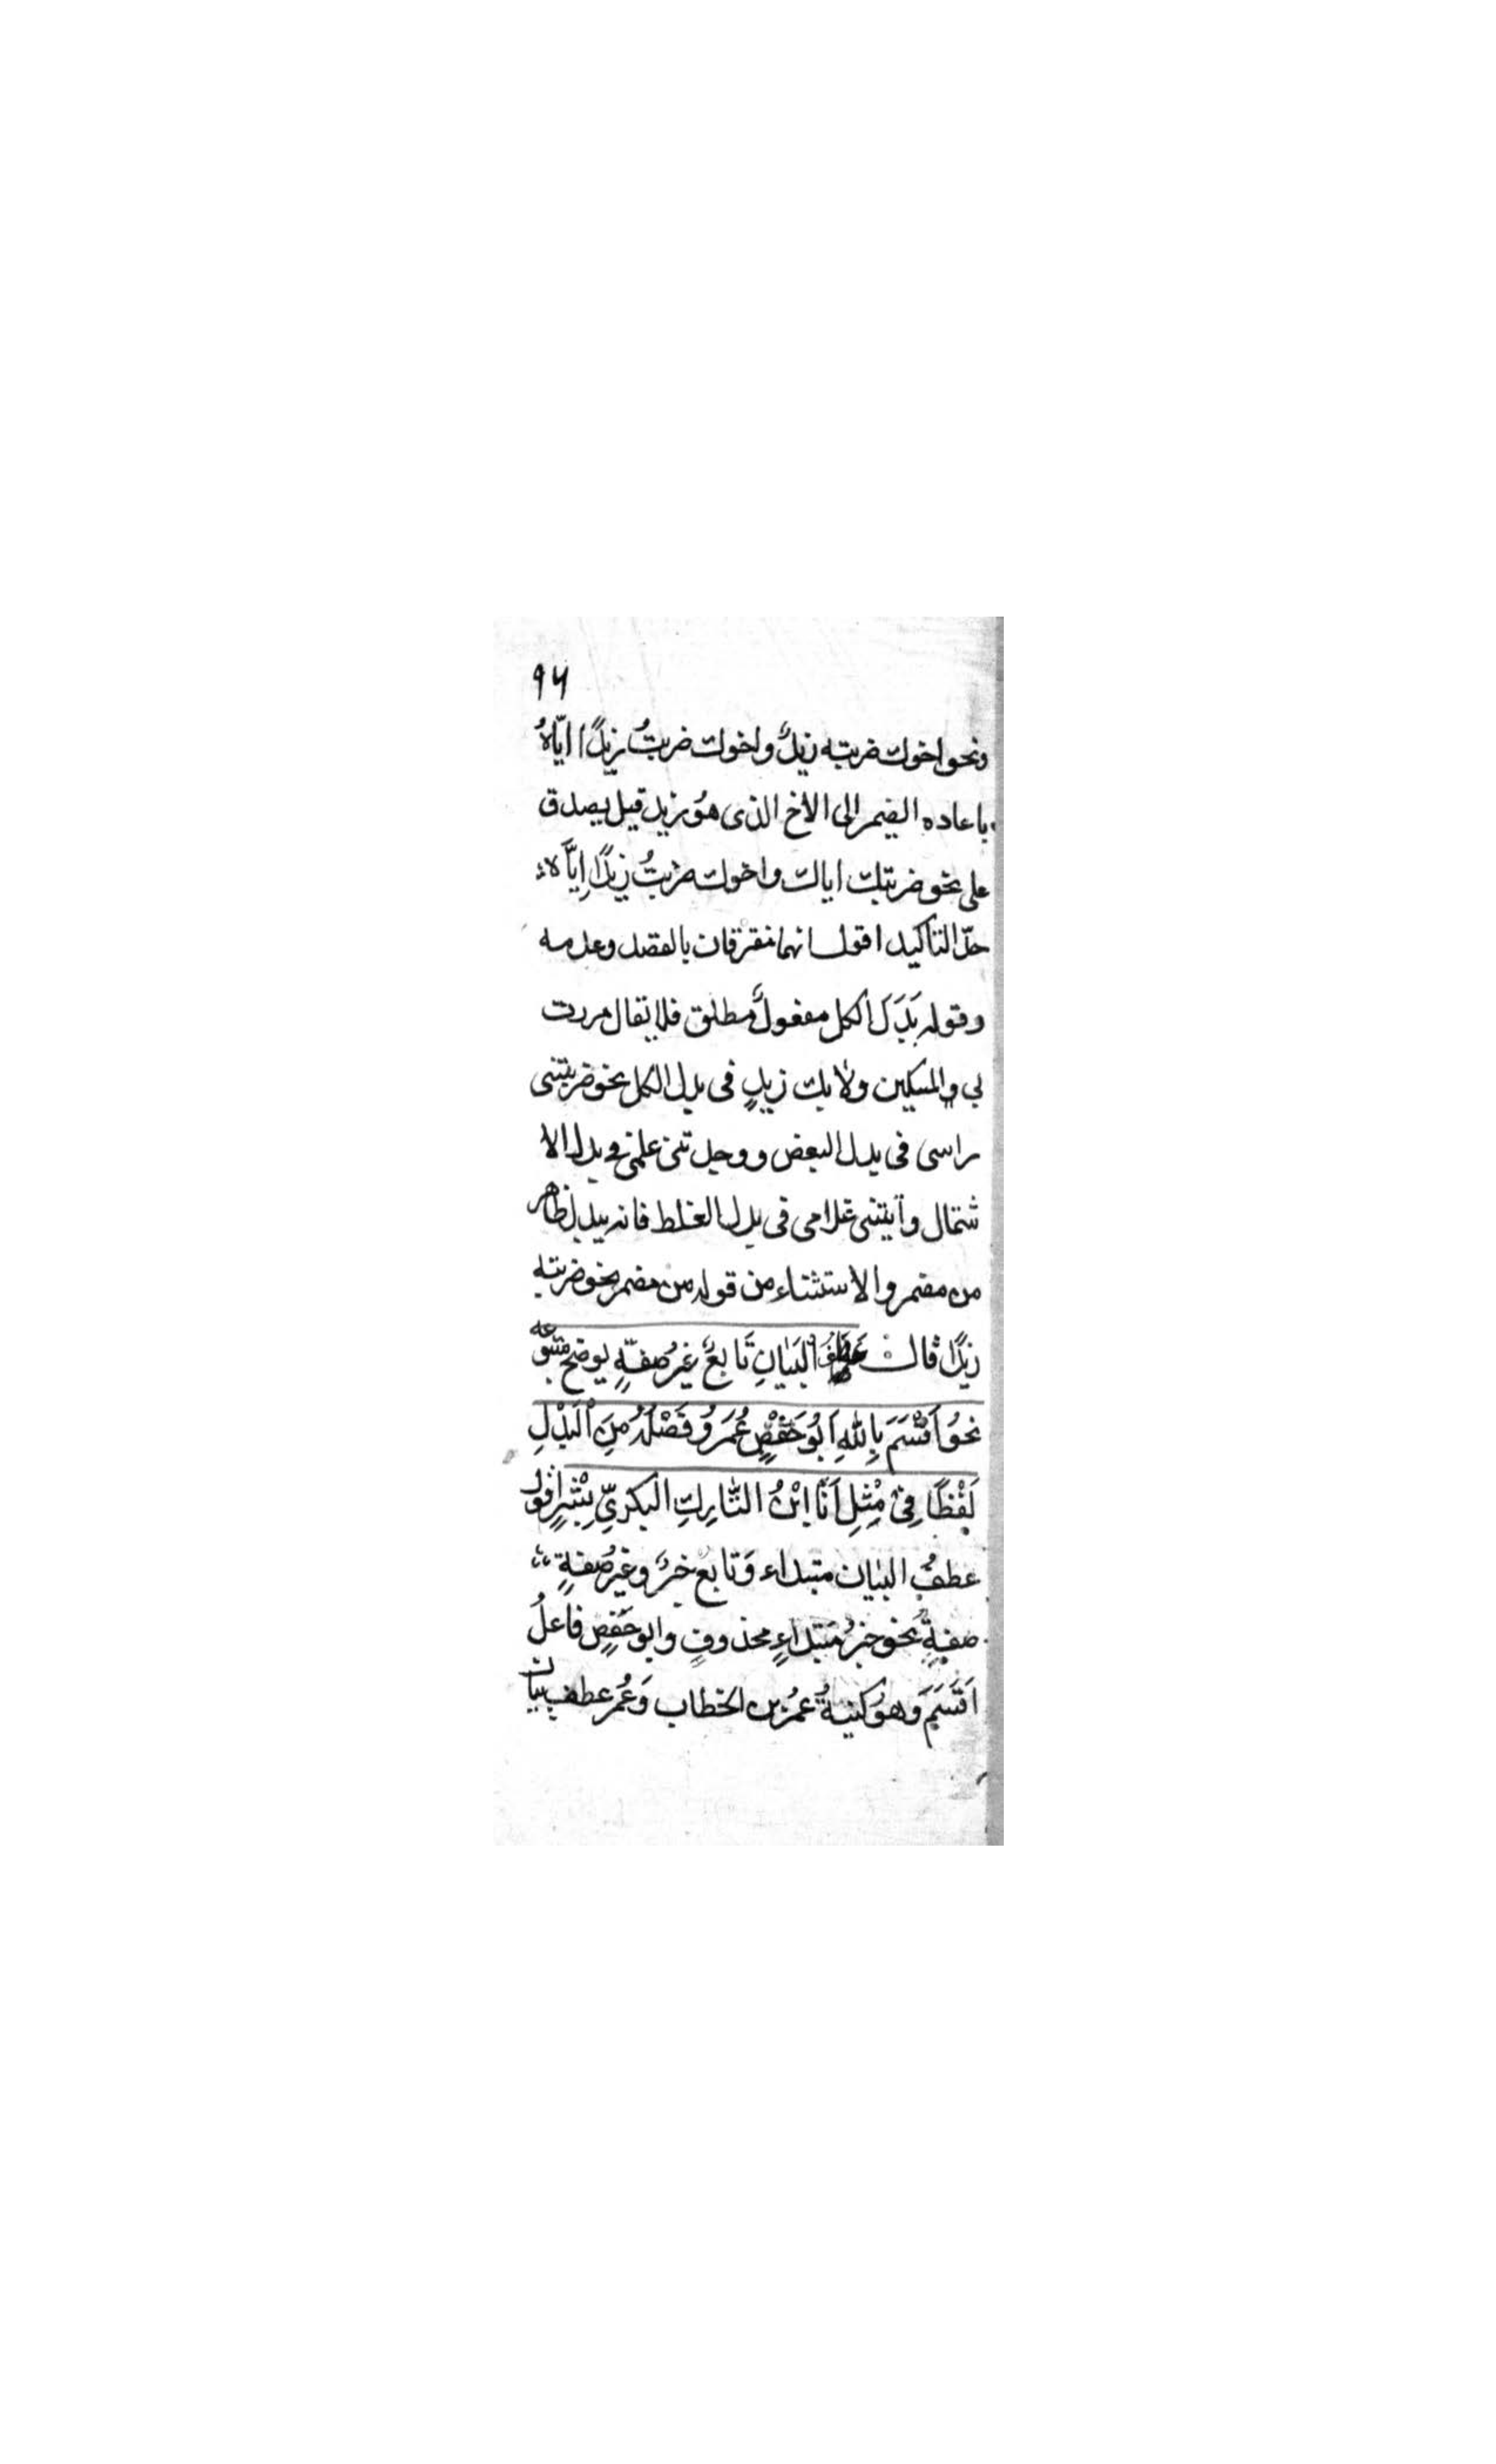 ٩٦
ونحو اخوك ضربته زيدٌ واخوك ضربتُ زيدًا ايّاهُ
باعاده الضمير الى الاخ الذى هُو زيد قيل يصدق
على نحو ضربتك اياك واخوك ضربتُ زيدًا اِيَّاه
حدّ التاكيد اقول انهما نفترقان بالقصد وعدمه
وقوله بَدَلَ الكل مفعولٌ مطلق فلا يقال مررت
بى والمسكين ولا بك زيدٍ فى بدل الكل نحو ضربتنى
راسى فى بدل البعض ووجدتنى علمى فى بدل الا
شتمال وأيتنى غلامى فى بدل الغلط فانه يبدل ظاهر
من مضمر والاستثناء من قوله من مضمر نحو ضربته
زيدًا قال عطفُ البَيَانِ تَابعٌ غيرُ صفةٍ يوضح متبوعه
نحوُ اَقْسَمَ بِاللّٰهِ اَبُو حَفْصٍ عُمَرُ وَفَصْلُهُ مِنَ الْبَدْلِ
لَفْظًا فِىْ مِثْلِ اَنَا ابْنُ التَّارِكِ البكرىِّ بِشْرٍ اقول
عطفُ البيان مبتداء وَتابعٌ خبرٌ وغيرُ صفةٍ
صفةٌ نحو خبرُ مُبتداءٍ محذوفٍ وابو حَفصٍ فاعلُ
اَقْسَمَ وَهو كنيةُ عمرُ بن الخطاب وَعُمر عطف بيان